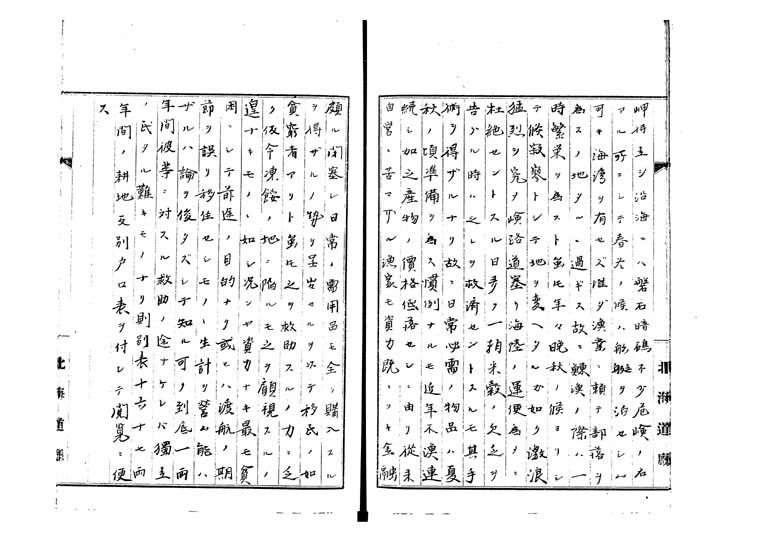 岬特立シ沿海ニハ磐石暗礁不少危険ノ名
アル所ニシテ春冬ノ候ハ船艇ヲ泊セシム
可キ海湾ヲ有セズ唯ダ漁業ニ頼テ部落ヲ
為スノ地タルニ過ギス故ニ鰊漁ノ際ハ一
時繁栄ヲ為スト雖モ年々晩秋ノ候ヨリシ
テ候寂寥トシテ地ヲ変ヘタルガ如ク激浪
猛烈ヲ究メ嶮路道塞リ海陸ノ運便為メニ
杜絶セントスル日多ク一朝米穀ノ欠乏ヲ
告グル時ハ之レヲ救済セントスルモ其手
術ヲ得ザルナリ故ニ日常必需ノ物品ハ夏
秋ノ頃準備ヲ為ス慣例ナルモ近年不漁連
続シ加之産物ノ価格低落セシニ由リ従来
自営ニ苦マザル漁家モ資力既ニツキ金融
頗ル閉塞シ日常ノ需用品モ全ク購入スル
ヲ得ザルノ勢ヲ呈セルヲ以テ移民ノ如
貧窮者アリト雖モ之ヲ救助スルノ力ニ乏
ク仮令凍餒ノ地ニ陥ルモ之ヲ顧視スルノ
遑ナキモノヽ如シ况ンヤ資力ナキ最モ貧
困ニシテ前途ノ目的ナク或ヒハ渡航ノ期
節ヲ誤リ移住セシモノヽ生計ヲ営ム能ハ
ザルハ論ヲ俟タズシテ知ル可ク到底一両
年間彼等ニ対スル救助ノ途ナケレバ独立
ノ民タル難キモノナリ則別表十六十七両
年間ノ耕地反別戸口表ヲ付シテ閲覧ニ便
ス
北海道庁
北海道庁